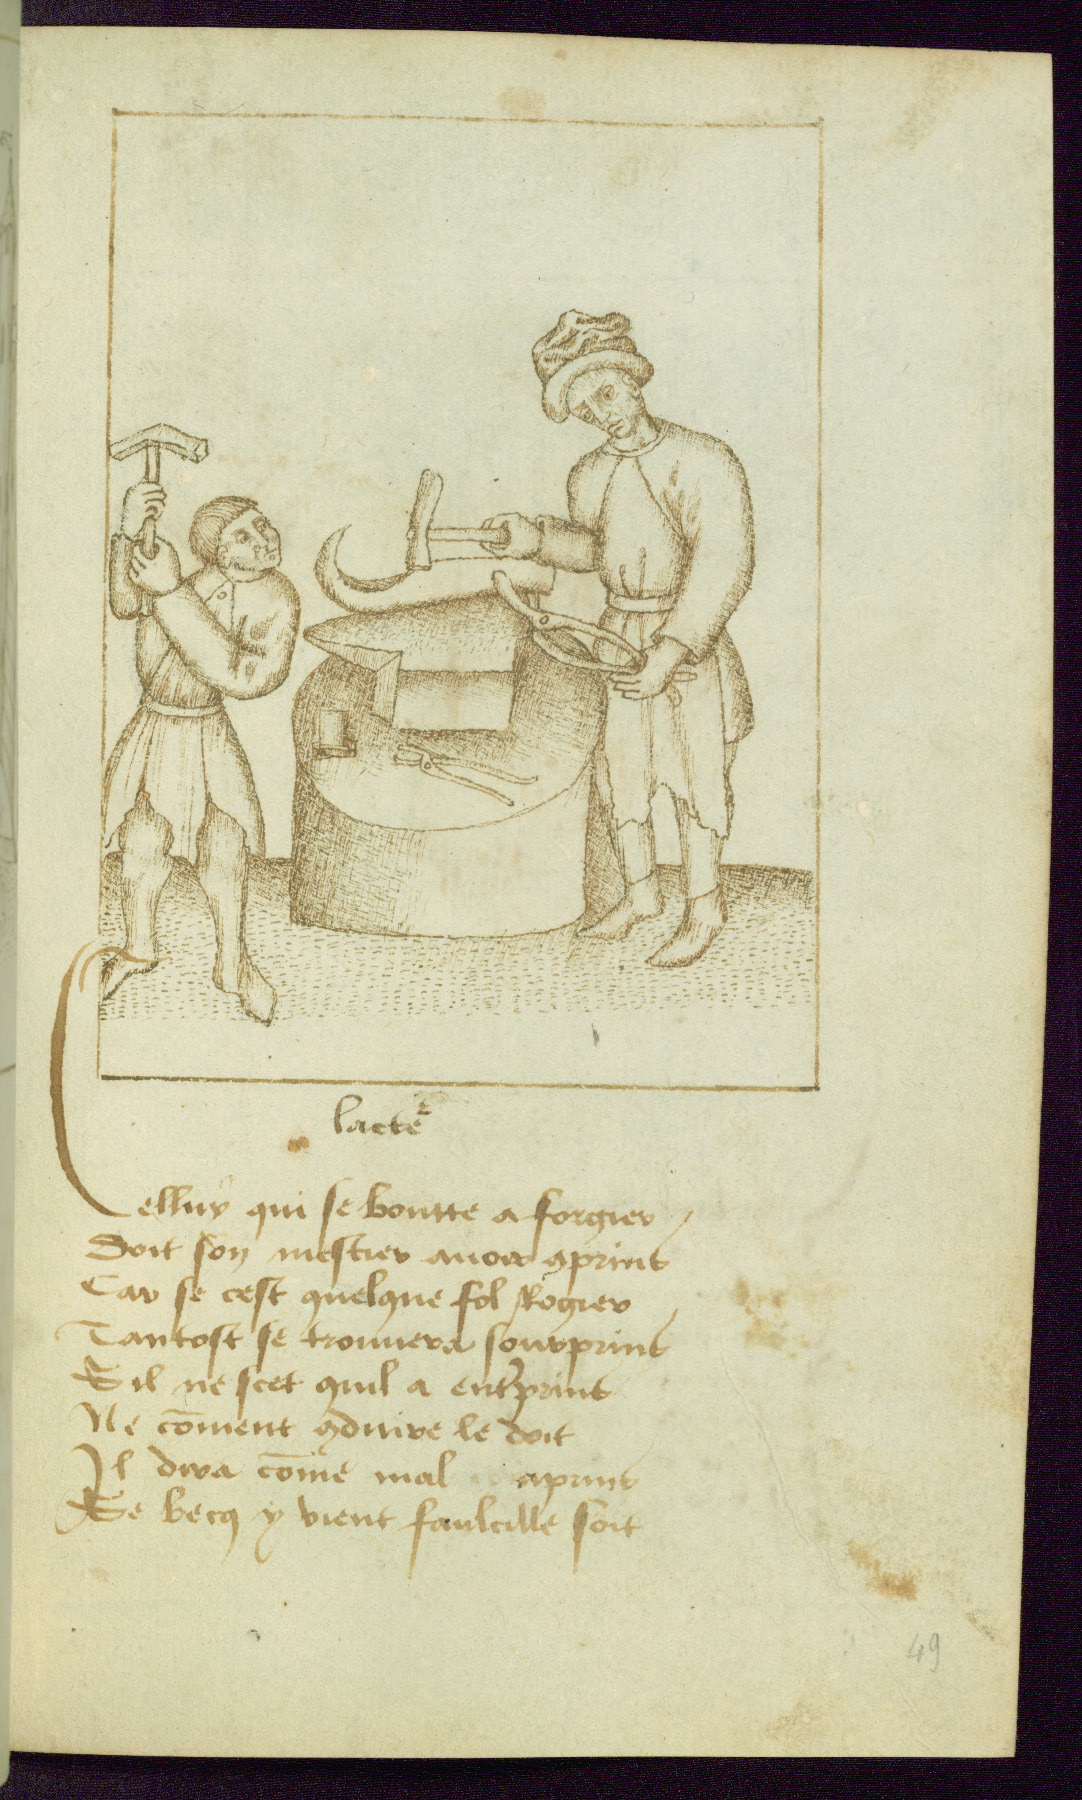 lactē
Celluy qui se boutte a forgier
Doit son mestier auoir aprins
Car se cest quelque fol Rogier
Tantost se trouuera sourprins
Sil ne scet quil a entrprins
Ne cōment 9duire le doit
Il dira cōme mal aprins
Se becq y vient faulcille soit
49